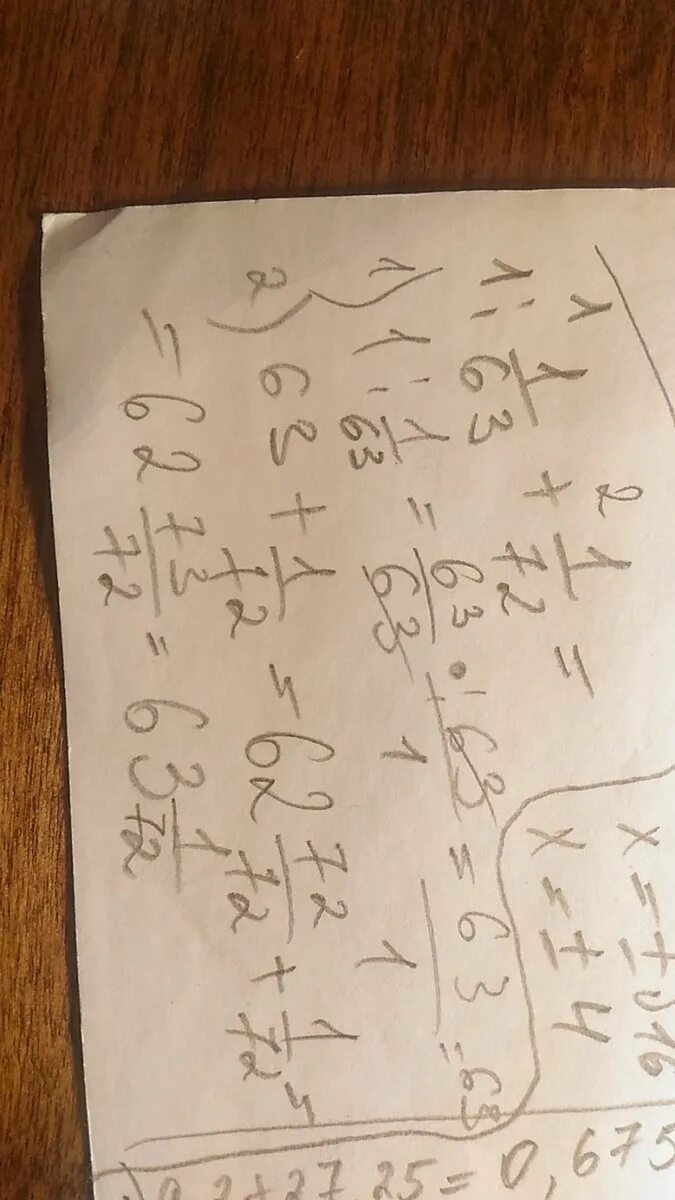 1 2
1 : 1/63 + 1/72 =
1) 1 : 1/63 = 63/63 : 63/1 = 63/1 = 63
2) 63 + 1/72 = 62 72/72 + 1/72 =
= 62 73/72 = 63 1/72
x = ± √16
x = ± 4
+27,25 = 0,675